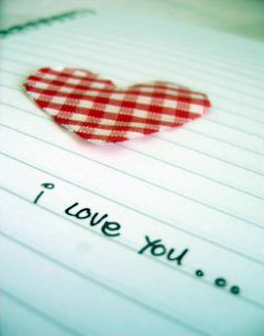 i love you...